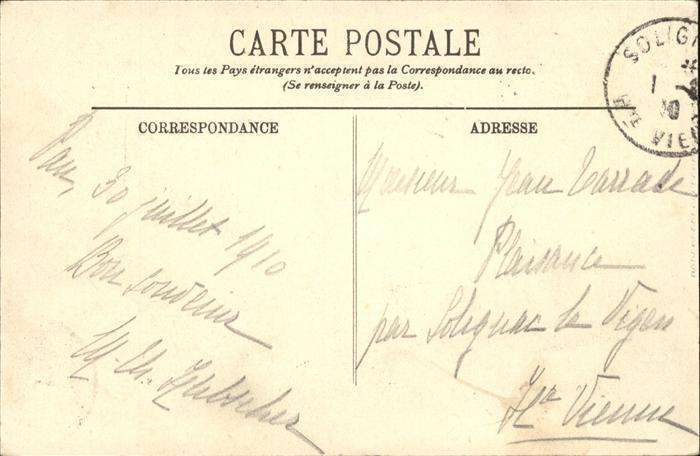 CARTE POSTALE
Tous les Pays étrangers n'acceptent pas la Correspondance au recto.
(Se renseigner à la Poste).
CORRESPONDANCE
Pau, 30 juillet 1910
Bon souvenir
ADRESSE
Monsieur Jean Tarrade
Plaisance
par Solignac le Vigen
Hte Vienne
SOLIGN
1
10
HTE VIEN